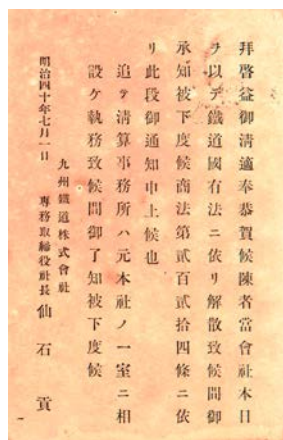 拜啓益御清適奉恭賀候陳者當會社本日
ヲ以テ鐵道國有法ニ依リ解散致候間御
承知被下度候商法第貳百貳拾四條ニ依
リ此段御通知申上候也
追テ清算事務所ハ元本社ノ一室ニ相
設ケ執務致候間御了知被下度候
明治四十年七月一日
九州鐵道株式會社
專務取締役社長 仙石 貢